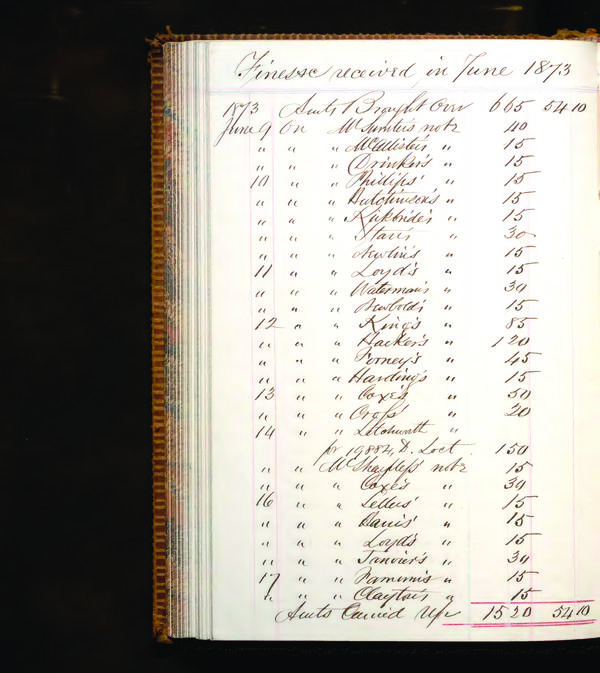 Finesse received in June 1873
1873 Amts Brought Over 665 54 10
June 9 On " Mr Sumter's note 40
" " " McAllister's " 15
" " " Drinker's " 15
10 " " Phillips' " 15
" " " Hutchinson's " 15
" " " Kirkbride's " 15
" " " Starr's " 30
" " " Newlin's " 15
11 " " Loyd's " 15
" " " Waterman's " 30
" " " Newbold's " 15
12 " " King's " 85
" " " Hacker's " 120
" " " Forney's " 45
" " " Harding's " 15
13 " " Coxe's " 50
" " " Cross' " 20
14 " " Letchworth "
for 19884, D. Loct. 150
" " Mr Sharpless' note 15
" " " Coxe's " 30
16 " " Sellers' " 15
" " " Davis' " 15
" " " Loyd's " 15
" " " Janvier's " 30
17 " " " 15
" " " " 15
Amts Carried Up 1520 54 10